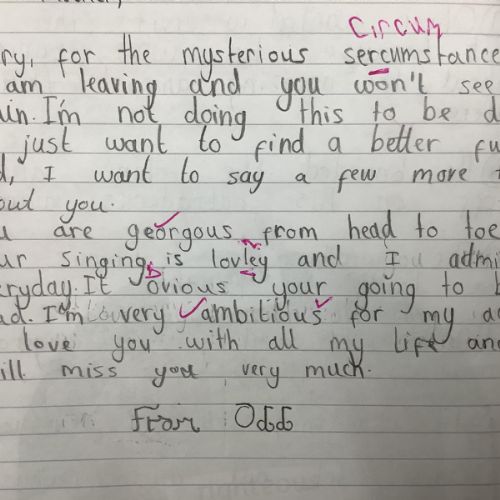 Circum
ry, for the mysterious sercumstance
am leaving and you won't see
ain. I'm not doing this to be d
just want to find a better fu
d, I want to say a few more
out you.
u are georgous from head to toe
ur singing is lovley and I admi
eryday. It ovious your going to b
ad. I'm very ambitious for my a
love you with all my life an
ill miss you very much.
from Odd